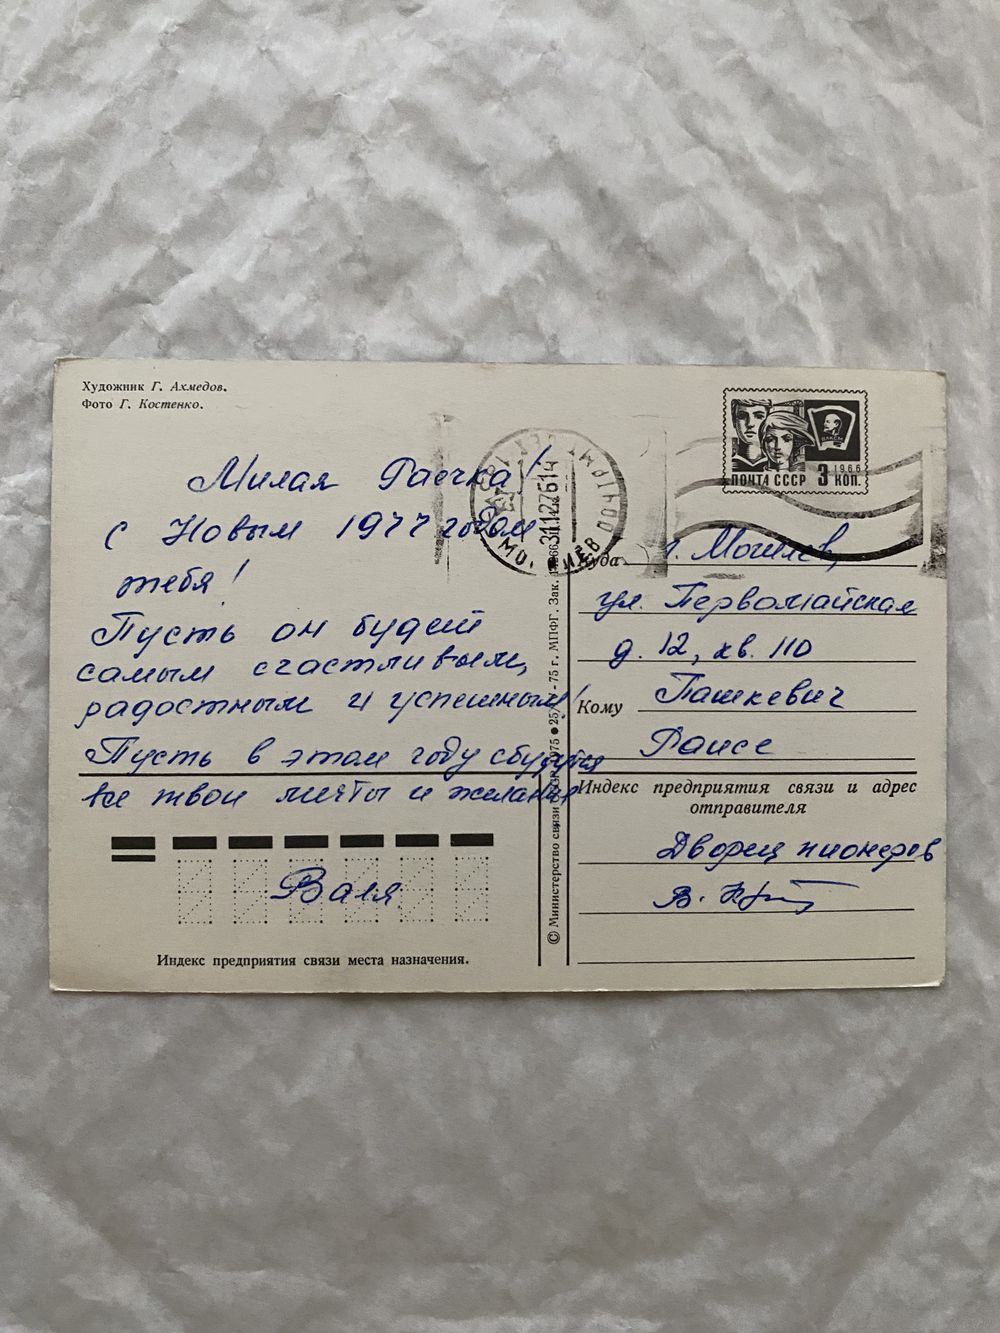 Художник Г. Ахмедов.
Фото Г. Костенко.
1966
ПОЧТА СССР 3 КОП.
ВЛКСМ
31127614
Милая Раечка!
С Новым 1977 годом
тебя!
Пусть он будет
самым счастливым,
радостным и успешным!
Пусть в этом году сбудутся
все твои мечты и желания
Валя
Индекс предприятия связи места назначения.
© Министерство связи СССР, 1975 ● 25/ - 75 г. МПФГ. Зак.
Куда г. Могилев,
ул. Первомайская
д. 12, кв. 110
Кому Пашкевич
Раисе
Индекс предприятия связи и адрес
отправителя
Дворец пионеров
В.